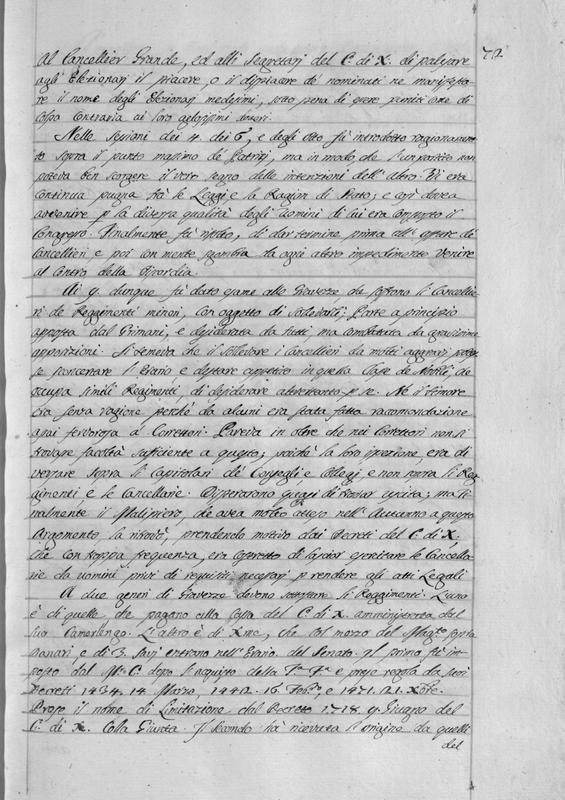 72
Al Cancellier Grande, ed alli Segretarj del C. di X. di palesare
agli Elezionarj il piacere, o il dispiacere de nominati ne manifesta-
re il nome degli Elezionarj medesimi, sotto pena di esere puniti come di
cosa contraria ai loro doveri.
Nelle sessioni dei 4. dei 5, e degli Otto fù introdotto ragionamen-
to sopra il punto massimo de Patrizj, ma in modo che l'un partito non
poteva ben scorgere il vero segno delle intenzioni dell'altro. Vi era
continua pugna trà le Leggi e la Ragion di Stato; e così dovea
avvenire p la diversa qualità degli uomini di cui era composto il
Congresso. Finalmente fù risolto, di dar termine prima all'affare de
Cancellieri e poi con mente sgombra da ogni altro impedimento venire
al Centro della discordia.
Ai 9. dunque fù dato esame alle Gravezze che soffrono li Cancellie-
ri de Reggimenti minori, con oggetto di sollevarli: Parte a principio
apposta dal Grimani, e desiderata da tutti ma combattuta da gravissime
opposizioni. Si temeva che il sollevare i Cancellieri da molti aggravi potes-
se sconcertare l'Erario e destare appetito in quelle Case de Nobili che
occupa simili Regimenti di desiderare altrettanto p se. Ne il timore
era senza ragione perchè da alcuni era stata fatta racomandazione
assai fervorosa a Correttori. Pareva in oltre che nei Correttori non si
trovasse facoltà sufficiente a questo; poichè la loro ispezione, era di
versare sopra li Capitolari de Consegli, e Collegj, e non sopra li Reg-
gimenti, e le Cancellarie. Disperavano quasi di trovar uscita; ma fi-
nalmente il Malipiero, che avea molto atteso nell'Autunno a questo
Argomento la ritrovò, prendendo motivo dai Decreti del C. di X,
che con troppa frequenza, era costretto di lasciar esercitare le Cancella-
rie da uomini privi di requisiti necessarj p rendere gli atti Legali
A due generi di Gravezze devono li Reggimenti. L'uno
è di quelle che pagano alla Cassa del C. di X. amministrata dal
suo Camerlengo. L'altro è di Xme, che col mezzo del Magto sopra
Danari, e di 3. Savj entrono nell'Erario del Senato. Il primo fù im-
posto dal M. C. dopo l'acquisto della Ta Fa e prese regola da suoi
Decreti 1434. 14. Marzo, 1442. 16. Febo, e 1471. 21. Xbre.
Prese il nome di Limitazione dal Decreto 1718. 9 Giugno del
C. di X. Colla Giunta. Il secondo hà ricevuta l'origine da quelli
del